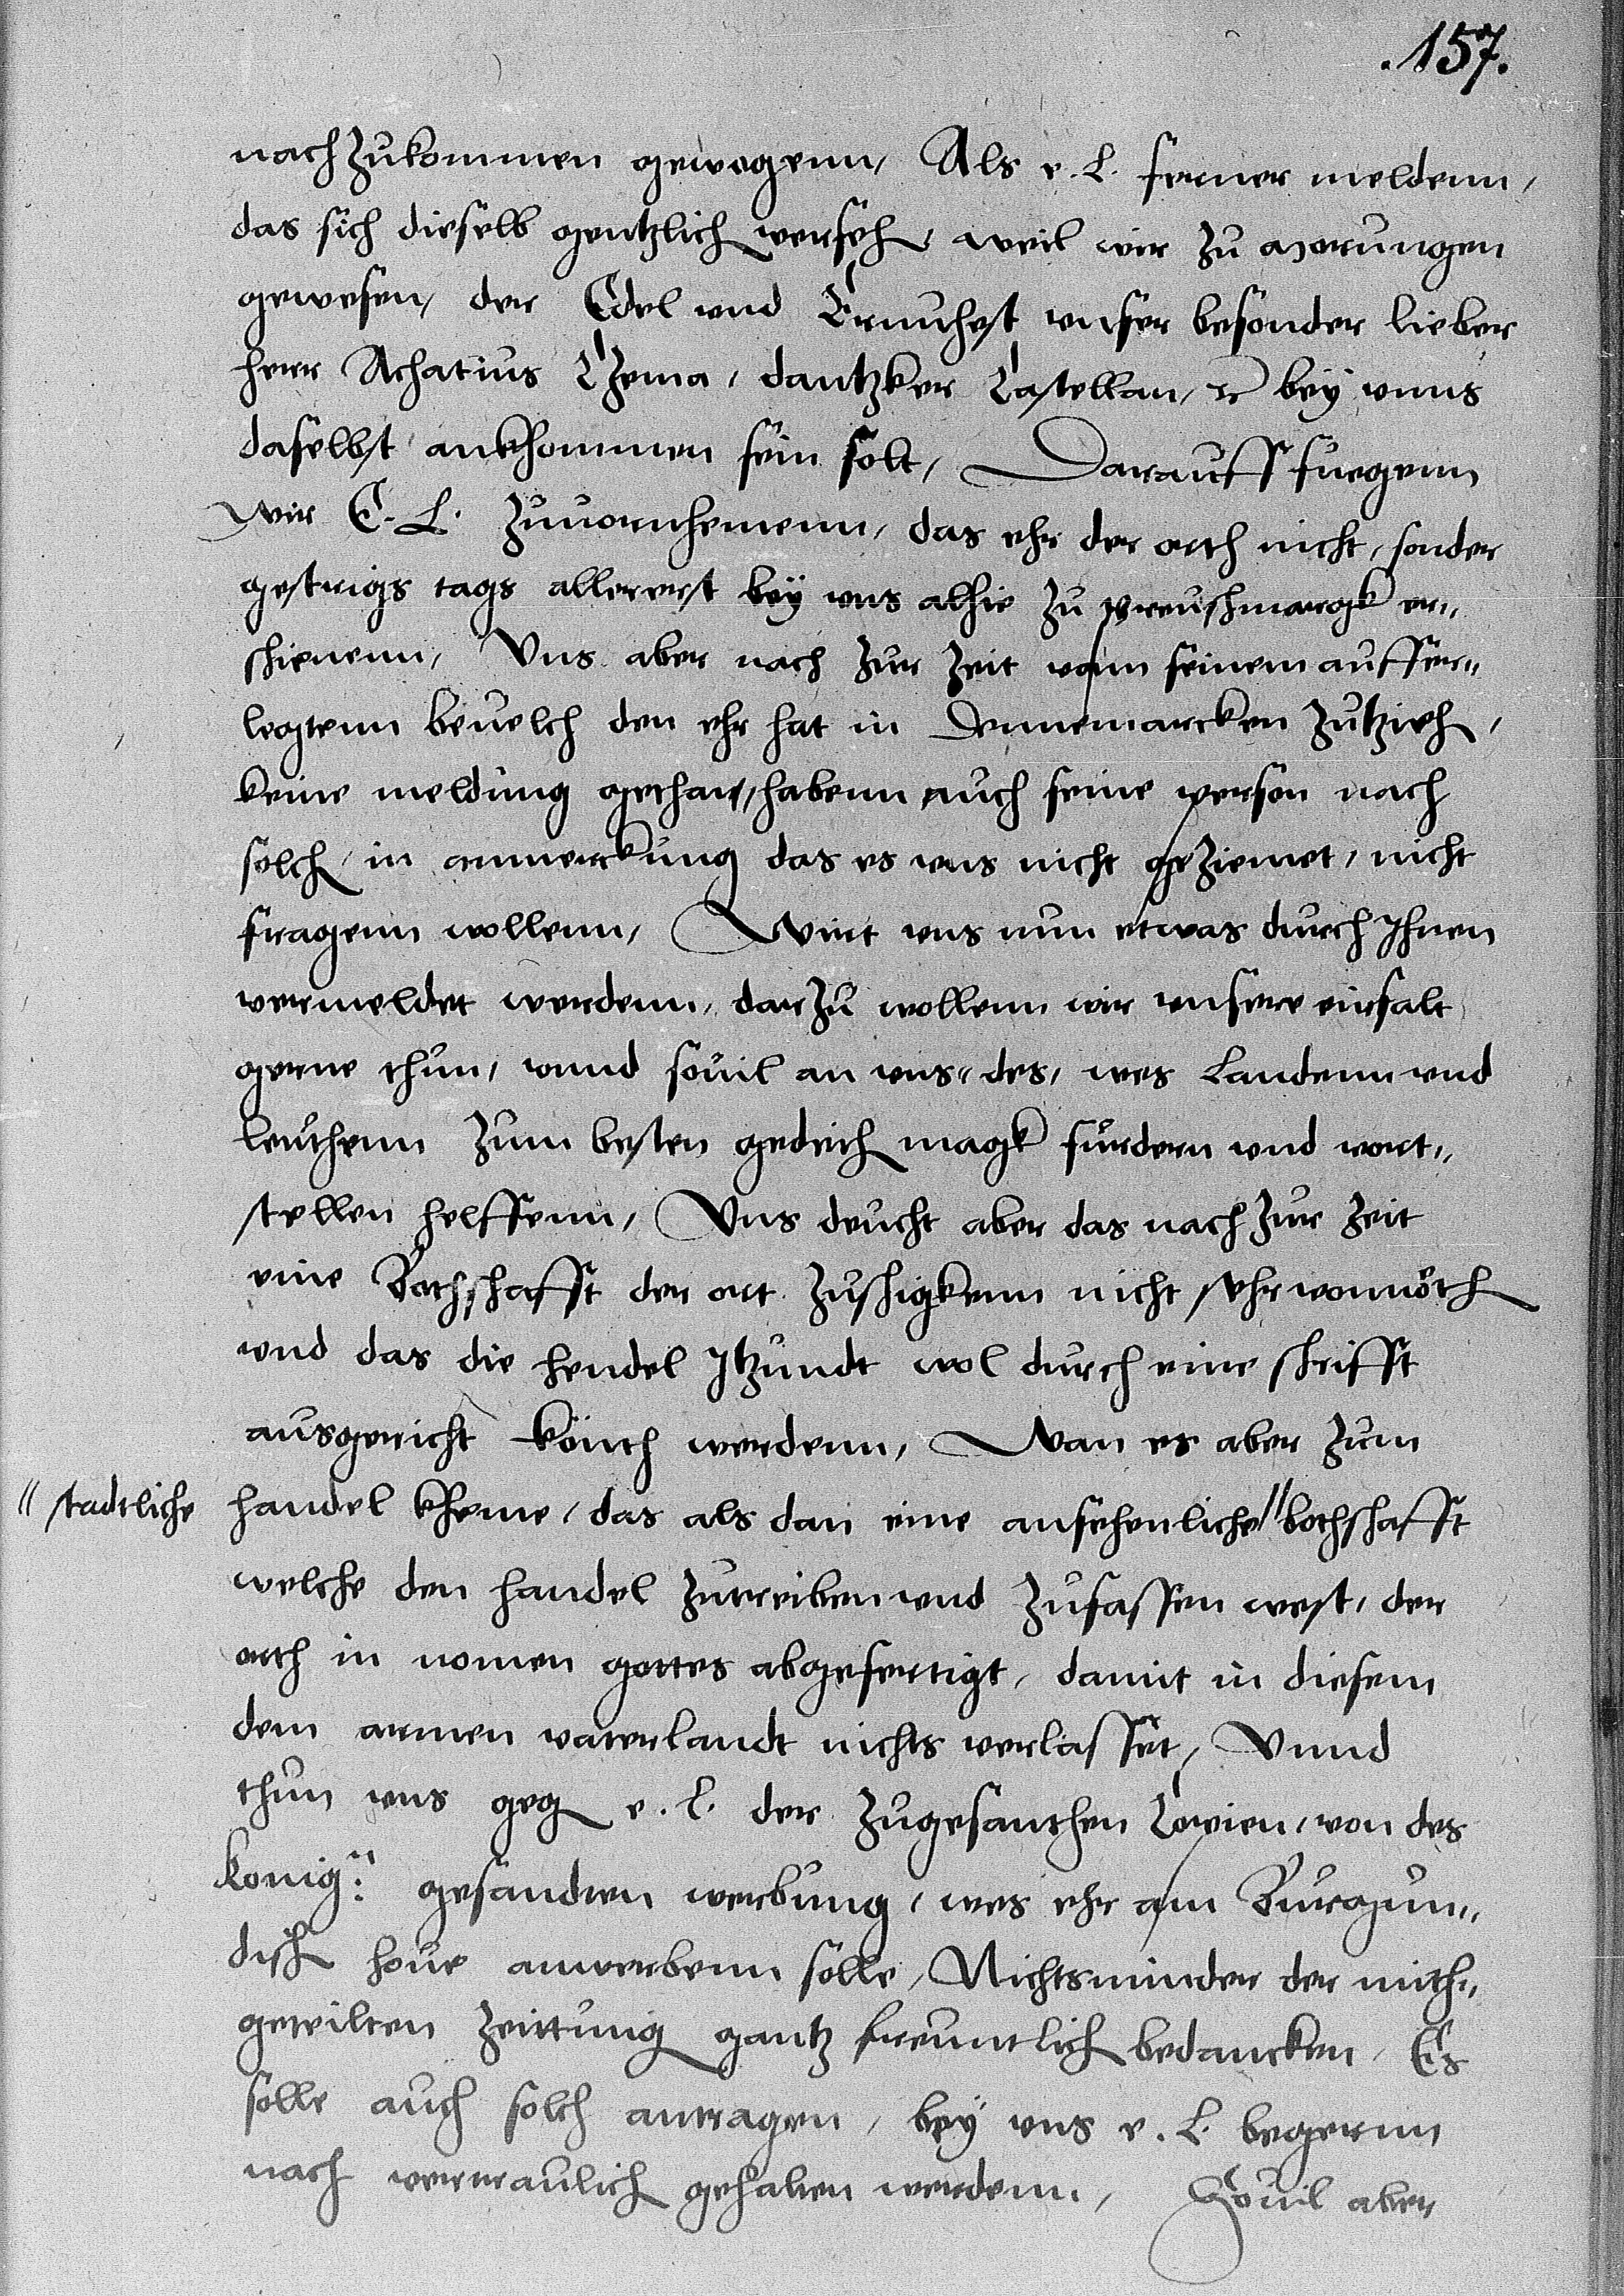 .157.
nachzukommen gewogenn, Als e. L. ferner meldenn,
das sich dieselb gentzlich verseh, weil wir zu Morungen
gewesen, der Edel und Ernvhest unser besonder lieber
herr Achatius Czema, dantzker Castellan, bey unns
daselbst ankhommen sein solt, Darauff fuegenn
wir E. L. zuuornhemenn, das ehr der orth nicht, sonder
gestrigs tags allererst bey uns alhie zu preuschmargk er„
schienenn, Uns aber nach zur zeit vonn seinem aufferˮ
legtenn beuelch den ehr hat in Dennemarcken zutzieh,
keine meldung gethan, habenn auch seine person nach
solch, in anmerckung das es uns nicht geziemet, nicht
fragenn wollenn, Wirt uns nun etwas durch Ihnen
vermeldet werdenn, darzu wollenn wir unsere einfalt
gerne thun, unnd souil an uns, des, wes Landenn und
leuthenn zum besten gedeich magk furdern und vort„
stellen helffenn, Uns deucht aber das nach zur zeit
eine Bothschafft der ort zuschigkenn nicht sehr vonnöth
und das die hendel Itzundt wol durch eine schrifft
ausgericht könth werdenn, Wan es aber zum
handel kheme, das als dan eine ansehenliche // bothschafft
// stadtliche
welche den handel zutreiben und zufassen west, der
orth in nomen gottes abgefertigt, damit in diesem
dem armen vaterlandt nichts verlasset, Unnd
thun uns geg e. l. der zugesanthen Copien, von des
konig: gesandten werbung, wes ehr am Burgun„
disch houe anwerbenn solle, Nichtsminder der mith„
geteilten zeittung gantz freuntlich bedancken, Es
solle auch solch antragen, bey uns e. L. begerenn
nach vertraulich gehalten werdenn, Souil aber